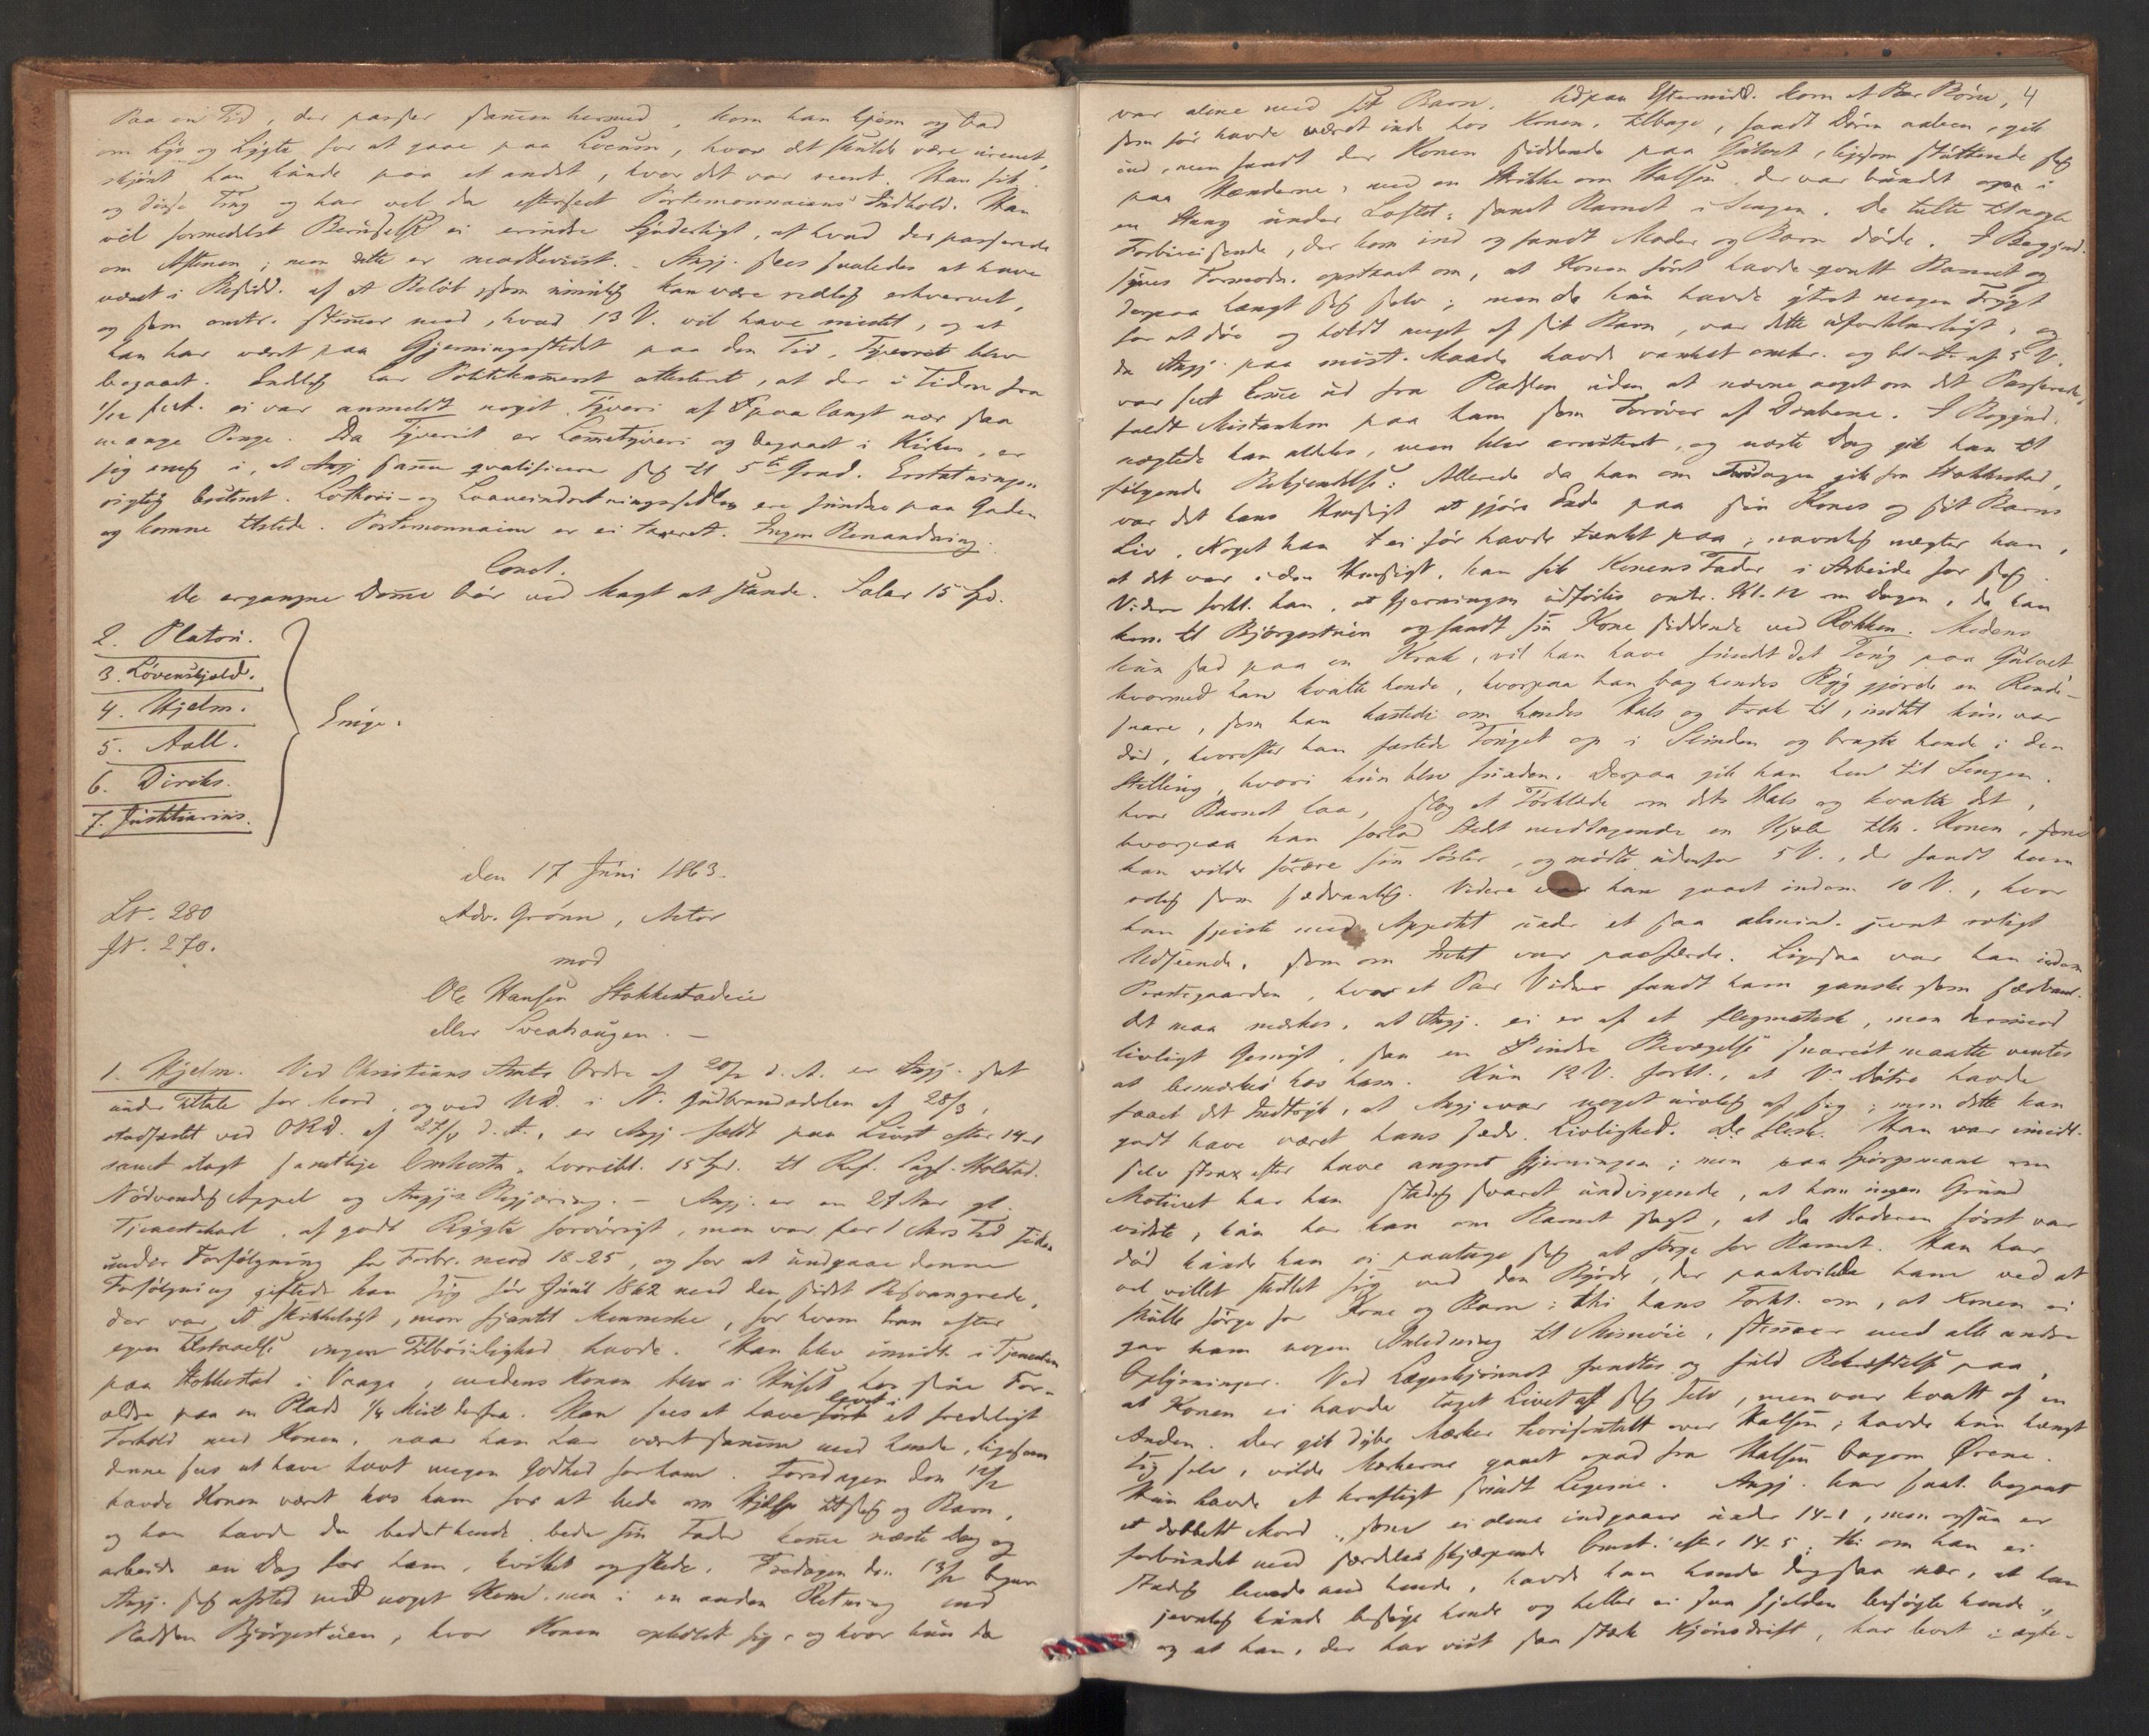 Paa en Tid, der passer sammen hermed, kom han hjem og bad
om Lys og Lygte for at gaae paa Locum, hvor det skulde være ureent,
skjønt han kunde paa et andet, hvor det var reent. Han fik
og disse Ting og har vel da efterseet Portemonnaiens Indhold. Han
vil formedelst Beruselse ei erindre Synderligt, af hvad der passerede
om Aftenen; men dette er modbeviist. Angj. sees saaledes at have
været i Besidd. af et Beløb, som umulig kan være redlig erhvervet,
og som omtr. stemmer med, hvad 13 V. vil have mistet, og at
han har været paa Gjerningsstedet paa den Tid, Tyveriet blev
begaaet. Endelig har Politikammeret attesteret, at der i Tiden fra
1/12 ei var anmeldt noget Tyveri af paa langt nær saa
mange Penge. Da Tyveriet er Lommetyveri og begaaet i Kirken, er
jeg enig i, at Angj. qvalificerer sig til 5te Grad. Erstatningen
rigtig bestemt. Lotteri- og ere fundne paa Gaden
og komne tilstede. Portemonnaien er ei taxeret. Ingen Bemærkning.
Concl.
De ergangne Domme bør ved Magt at stande. Salær 15 Spd.
2. Platou.
3. Løvenskjold.
4. Hjelm.
5. Aall.
6. Diriks.
7. Justitiarius.
Enige.
den 17 Juni 1863.
Lt. 280
Jt. 270.
Adv. Grønn, Actor
mod
Ole Hansen Stokkestadeie
eller Sveahaugen. —
1. Hjelm. Ved Christians Amts Ordre af 20/2 d. A. er Angj. sat
under Tiltale for Mord, og ved UD. i N. Gudbrandsdalen af 28/3,
stadfæstet ved ORD. af 27/4 d. A., er Angj. fældt paa Livet efter 14-1
samt ilagt samtlige Omkostn., hvoribl. 15 Spd. til Def.
Nødvendig Appel og Angj.s Begjæring. — Angj. er en 27 Aar gl.
Tjenestekarl, af godt Rygte forøvrigt, men var for 1 Aars Tid siden
under Forfølgning for Forbr. mod 18-25, og for at undgaae denne
Forfølgning giftede han sig før Juul 1862 med den sidst Besvangrede,
der var et skikkeligt, men Menneske, for hvem han efter
egen Tilstaaelse ingen Tilbøielighed havde. Han blev imidl. i Tjenesten
paa Stokkestad i Vaage, medens Konen blev i Huset hos sine For-
ældre paa en Plads 1/4 Miil derfra. Han sees at have levet i et fredeligt
Forhold med Konen, naar han har været sammen med hende, ligesom
denne sees at have havt megen Godhed for ham. Torsdagen den 12/2
havde Konen været hos ham for at bede om Hjelp til sig og Barn,
og han havde da bedet hende bede sin Fader komme næste Dag og
arbeide en Dag for ham, hvilket og skede. Fredagen den 13/2 begav
Angj. sig afsted med noget Korn, men i en anden Retning end
Pladsen Bjørgestuen, hvor Konen opholdt sig, og hvor hun da
4
var alene med sit Barn. Udpaa Eftermidd. kom et Par Børn,
som før havde været inde hos Konen, tilbage, fandt Døren aaben, gik
ind, men fandt der Konen siddende paa Gulvet, ligesom støttende sig
paa Hænderne, med en Strikke om Halsen, der var bundet op i
en Stang under Loftet, samt Barnet i Sengen. De tilkaldte nogle
Forbireisende, der kom ind og fandt Moder og Barn døde. I Begynd.
synes Formodn. opstaaet om, at Konen først havde qvalt Barnet og
derpaa hængt sig selv; men da hun havde ytret megen Frygt
for at døe og holdt meget af sit Barn, var dette uforklarligt, og
da Angj. paa mist. Maade havde vanket omkr. og bl. A. af 5 V.
var seet komme ud fra Pladsen uden at nævne noget om det Passerede,
faldt Mistanken paa ham som Udøver af Drabene. I Begynd.
nægtede han aldeles, men blev arresteret, og næste Dag gik han til
følgende Bekjendelse: Allerede da han om Fredagen gik fra Stokkestad,
var det hans Hensigt at gjøre Ende paa sin Kones og sit Barns
Liv, Noget han ei før havde tænkt paa; navnlig nægter han,
at det var i den Hensigt, han fik Konens Fader i Arbeide for sig.
Videre forkl. han, at Gjerningen udførtes omtr. Kl. 12 om Dagen, da han
kom til Bjørgestuen og fandt sin Kone siddende ved Rokken. Medens
hun sad paa en Krak, vil han have fundet det Toug paa Gulvet
hvormed han kvalte hende, hvorpaa han bag hendes Ryg gjorde en Rende-
snare, som han kastede om hendes Hals og trak til, indtil hun var
død, hvorefter han fæstede Touget op i Slinden og bragte hende i den
Stilling, hvori hun blev funden. Derpaa gik han hen til Sengen,
hvor Barnet laa, slog et Tørklæde om dets Hals og kvalte det,
hvorpaa han forlod Stedet medtagende en Kjole tilh. Konen, som
han vilde forære sin Søster, og mødte udenfor 5 V., der fandt ham
rolig som sædvanlig. Videre var han gaaet indom 10 V., hvor
han spiste med Appetit under et saa almind. jevnt roligt
Udseende, som om Intet var paafærde. Ligesaa var han indom
Præstegaarden, hvor et Par Vidner fandt ham ganske som sædvanl.
Det maa mærkes, at Angj. ei er af et flegmatisk, men derimod
livligt Gemyt, saa en indre Bevægelse snarest maatte ventes
at bemærkes hos ham. Kun 12 V. forkl., at V. havde
faaet det Indtryk, at Angj. var noget urolig af sig; men dette kan
godt have været hans sædv. Livlighed. Han var imidl.
selv strax efter have angret Gjerningen; men paa Spørgsmaal om
Motivet har han stadig svaret undvigende, at han ingen Grund
vidste, kun har han om Barnet sagt, at da Moderen først var
død kunde han ei paatage sig at sørge for Barnet. Han har
vel villet skillet sig ved den Byrde, der paahvilede ham ved at
skulle sørge for Kone og Barn; thi hans Forkl. om, at Konen ei
gav ham nogen Anledning til Misnøie, stemmer med alle andre
Oplysninger. Ved Lægeskjønnet fandtes og fuld Bekræftelse paa,
at Konen ei havde taget Livet af sig selv, men var kvalt af en
Anden. Der gik dybe Mærker horisontalt over Halsen; havde hun hængt
sig selv, vilde Mærkerne gaaet opad fra Halsen bagom Ørene.
Hun havde et kraftigt sundt Legeme. Angj. har saal. begaaet
et dobbelt Mord, som ei alene indgaaer under 14-1, men ogsaa er
forbundet med særdeles skjærpende Omst. efter 14-5; thi om han ei
stadig levede med hende, havde han hende dog saa nær, at han
jevnlig kunde besøge hende og heller ei saa sjelden besøgte hende,
og at han, der har viist saa stærk Kjønsdrift, har levet i ægte-